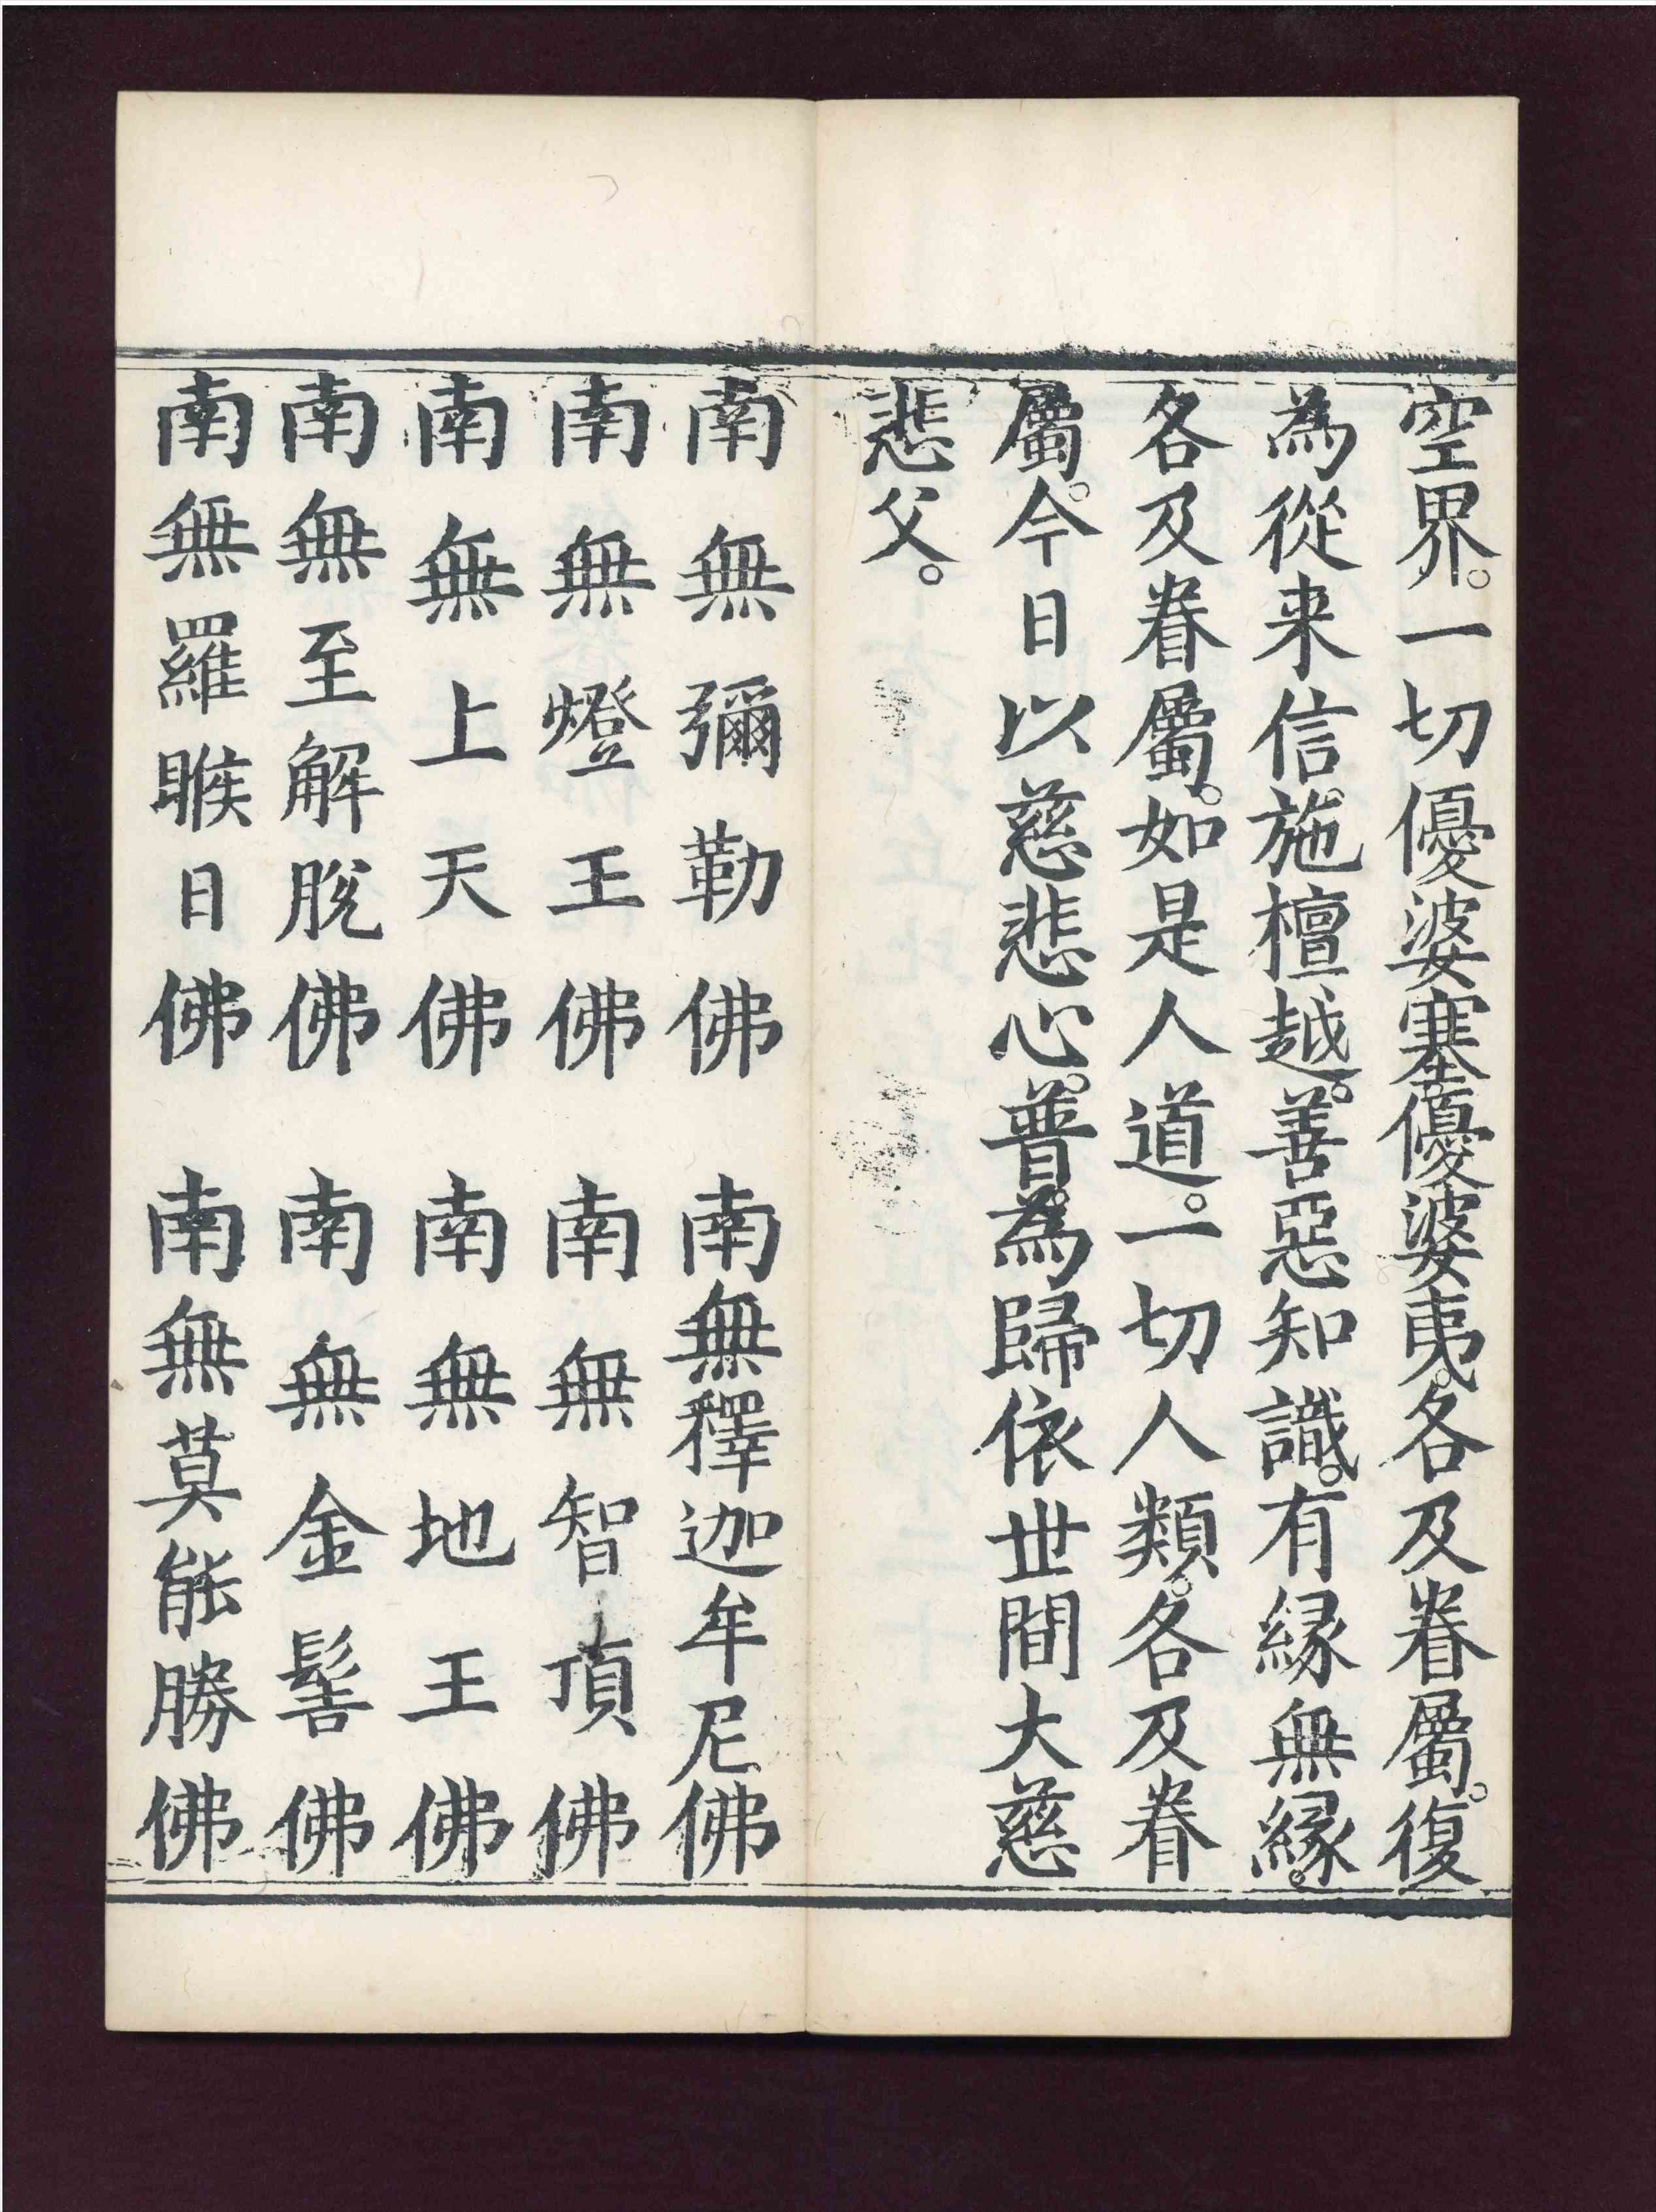 空界。一切優婆塞優婆夷。各及眷屬。復
為從来信施檀越。善惡知識。有緣無緣。
各及眷屬。如是人道。一切人類。各及眷
屬。今日以慈悲心。普為歸依世間大慈
悲父。
南無彌勒佛　南無釋迦牟尼佛
南無燈王佛　南無智頂佛
南無上天佛　南無地王佛
南無至解脫佛　南無金髻佛
南無羅睺日佛　南無莫能勝佛